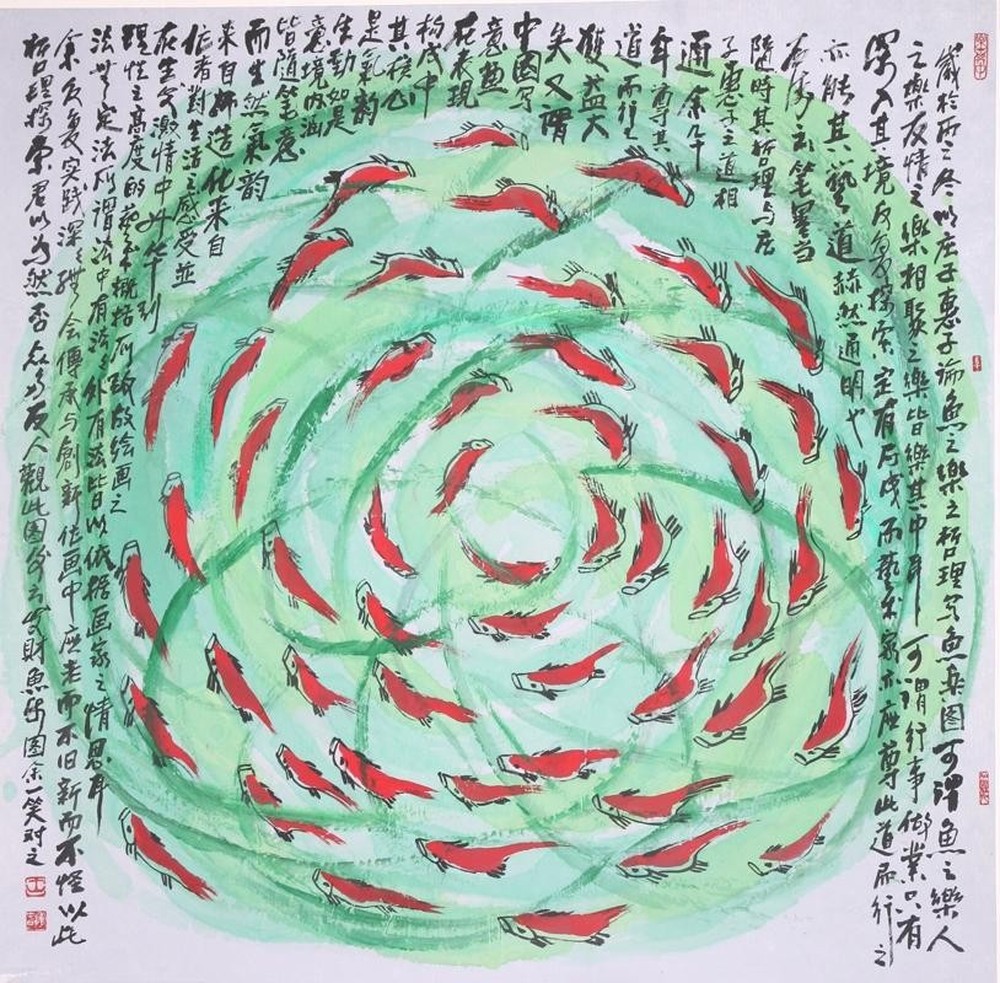 歲於之冬以庄子惠子論魚之樂之哲理写魚樂图可谓魚之樂人
之樂友情之樂相聚之樂皆樂其中耳可謂行事做業只有
深入其境反复探索定有所成而藝术家亦应尊此道而行之
亦能其藝道赫然通明也
之笔墨当
隨時其哲理与庄
子惠子之道相
通余几十
年尊其
道而行之
獲益大
矣又謂
中國写
意画
在表现
构成中
其核心
是氣韵
生動如是
意境内涵
皆随笔意
而生然氣韵
来自师造化来自
作者對生活之感受並
在生命激情中升华到
理性之高度的藝术概括所致故绘画之
法無定法所谓法中有法法外有法皆以依據画家之情思耳
余反复实践深深体会傳承与創新作画中应老而不旧新而不怪以此
哲理探索君以为然否众友人觀此图云發財魚乐图余一笑对之